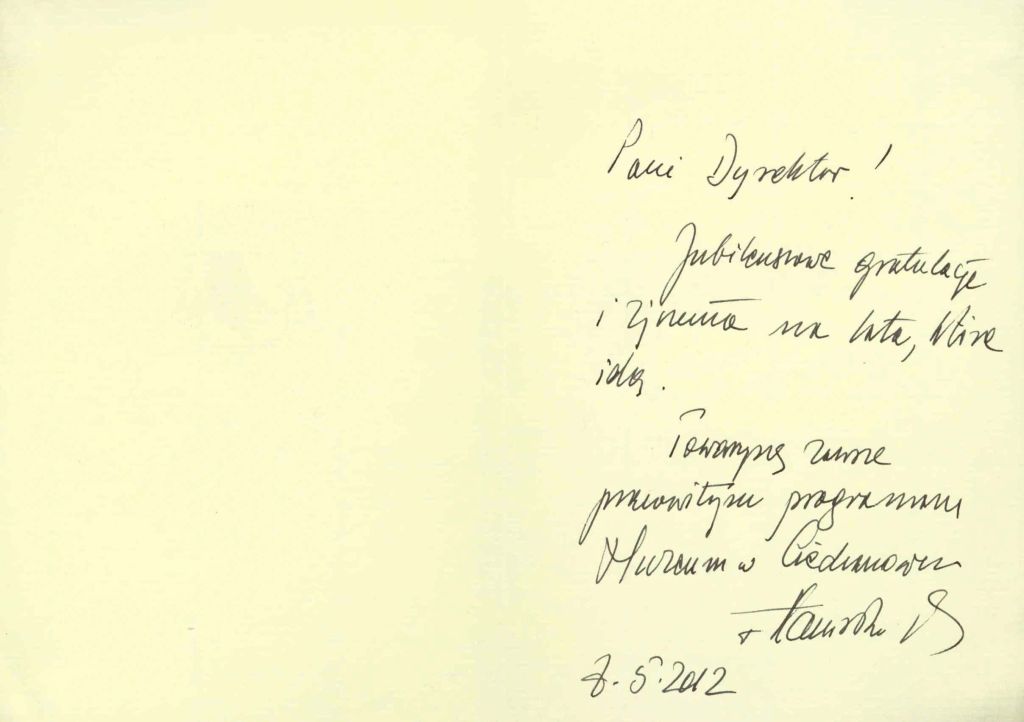 Pani Dyrektor!
Jubileuszowe gratulacje
i życzenia na lata, które
idą.
Towarzyszę zawsze
pracowitym programom
Muzeum w Ciechanowcu
8.5.2012